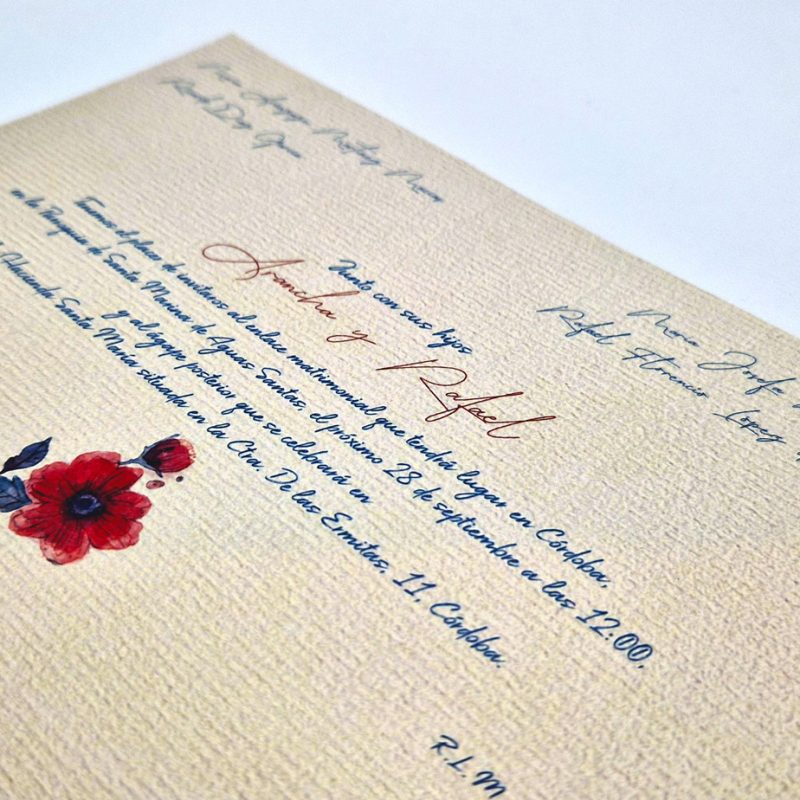 Josefa
Rafael Florencio López
Junto con sus hijos
Arancha y Rafael
Tenemos el placer de invitaros al enlace matrimonial que tendrá lugar en Córdoba,
en la Parroquia de Santa Marina de Aguas Santas, el próximo 28 de septiembre a las 12:00,
y al ágape posterior que se celebrará en
Hacienda Santa María situada en la Ctra. De las Ermitas, 11, Córdoba.
R.L.M